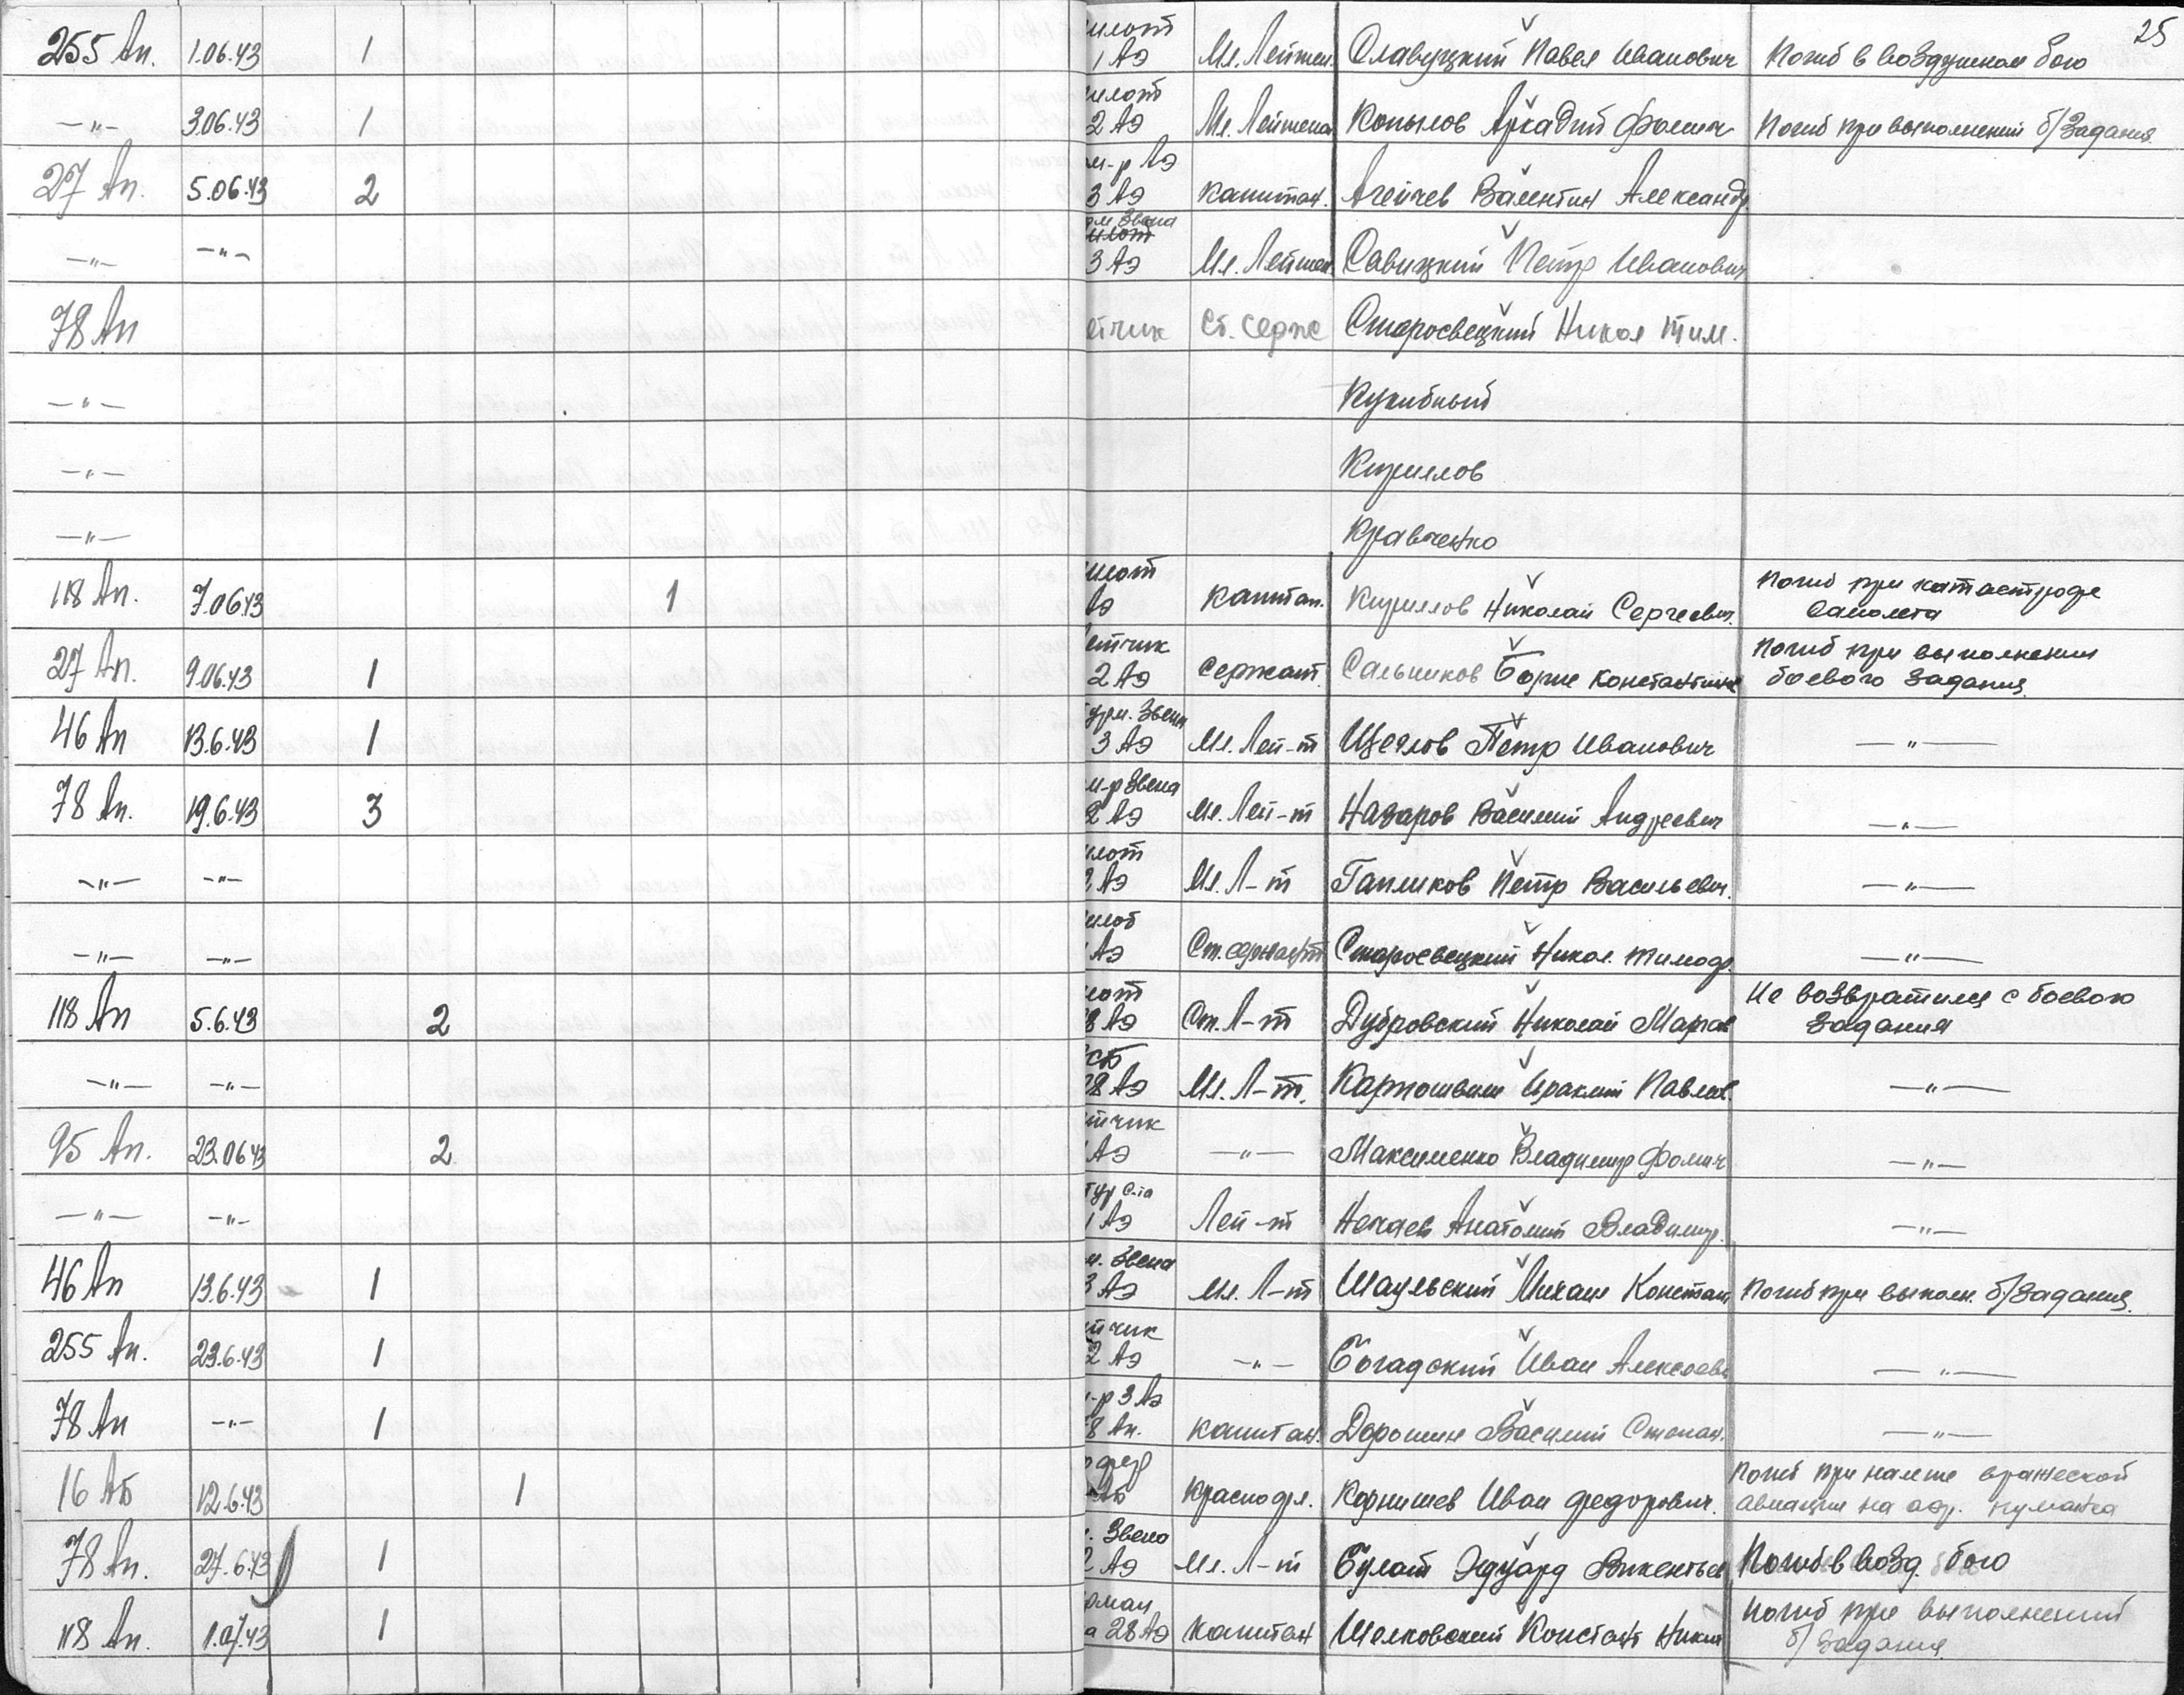 25
255 Ап. 1.06.43 1 илот 1 АЭ Мл. Лейтен. Славуцкий Павел Иванович Погиб в воздушном бою
—"— 3.06.43 1 илот 2 АЭ Мл. Лейтенан Копылов Аркадий Фомич Погиб при выполнений б/задания.
27 Ап. 5.06.43 2 м-р АЭ 3 АЭ Капитан. Агейчев Валентин Александр.
—"— —"— ом Звена 3 АЭ Мл. Лейтен. Савицкий Петр Иванович
78 Ап етчик Ст. серж Старосвецкий Никол Тим.
—"— Кукибный
—"— Кириллов
—"— Кравченко
118 Ап. 7.06.43 1 илот АЭ Капитан. Кириллов Николай Сергеевич. Погиб при катастрофе
самолета
27 Ап. 9.06.43 1 етчик 2 АЭ Сержант. Сальников Борис Константин Погиб при выполнении
боевого задания.
46 Ап 13.6.43 1 турм. Звена 3 АЭ Мл. Лей-т Щеглов Петр Иванович —"—
78 Ап. 19.6.43 3 м-р Звена 2 АЭ Мл. Лей-т Назаров Василий Андреевич —"—
—"— —"— илот 2 АЭ Мл. Л-т Гапликов Петр Васильевич. —"—
—"— —"— илот АЭ Ст. сержант Старосвецкий Никол. Тимоф. —"—
118 Ап 5.6.43 2 лот 28 АЭ Ст. Л-т Дубровский Николай Марков Не возвратился с боевого
задания
—"— —"— 28 АЭ Мл. Л-т. Картошвили Ираклий Павлов. —"—
95 Ап. 23.06.43 2 тчик АЭ —"— Максименко Владимир Фомич —"—
—"— —"— 1 АЭ Лей-т Нечаев Анатолий Владимир. —"—
46 Ап 13.6.43 1 м. Звена 3 АЭ Мл. Л-т Шаульский Михаил Констан Погиб при выполн. б/задания.
255 Ап. 23.6.43 1 тчик 2 АЭ —"— Богадский Иван Алексеев —"—
78 Ап —"— 1 м-р 3 АЭ 78 Ап. Капитан. Дорошин Василий Степан. —"—
16 АБ 12.6.43 1 Краснофл. Корнишев Иван Федорович. Погиб при налете вражеской
авиации на аэр. Кумажа
78 Ап. 27.6.43 1 Звена 2 АЭ Мл. Л-т Булат Эдуард Викентьев Погиб в возд. бою
118 Ап. 1.07.43 1 рман 28 АЭ Капитан Шелковский Констант Никит Погиб при выполнений
б/задания.